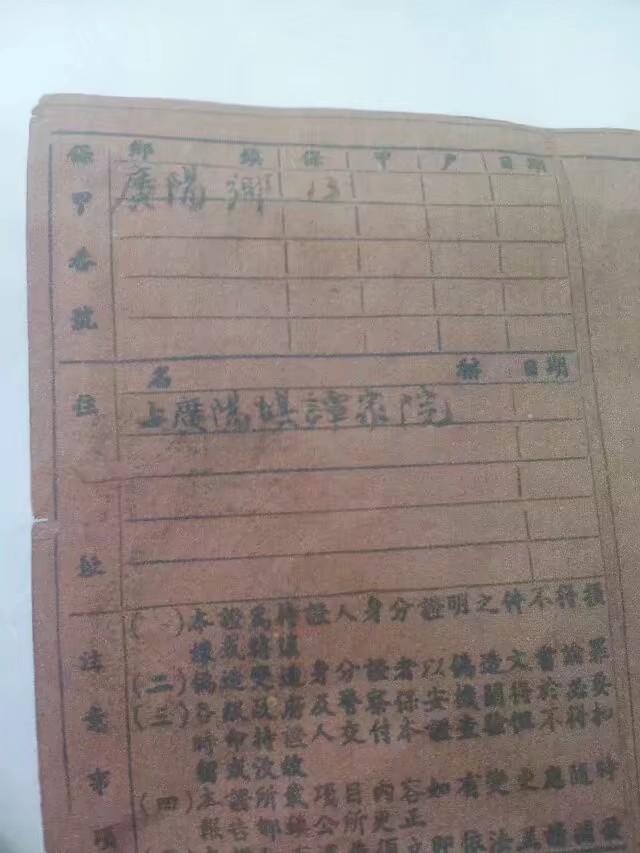 保甲番號
鄉 鎮 保 甲 戶 日期
廣陽鄉 13
住址
名 稱 日期
上廣陽垻譚家院
注意事項
(一)本證為持證人身分證明之件不得損
壞或轉借
(二)偽造變造身分證者以偽造文書論罪
(三)各級政府及警察保安機關得於必要
時命持證人交付本證查驗但不得扣
留或沒收
(四)本證所載項目內容如有變更應隨時
報告鄉鎮公所更正